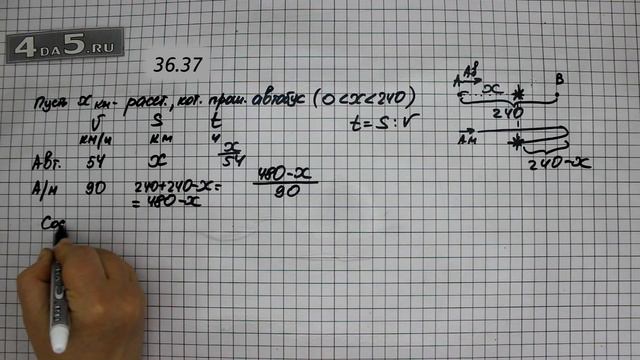 4DA5.RU
36.37
Пусть x км - расст., кот. прош. автобус (0 < x < 240)
V S t
км/ч км ч
t = S : V
Авт. 54 x x/54
А/м 90 240+240-x= (480-x)/90
= 480-x
Сос
Ав
A x B
240
Ам
240-x